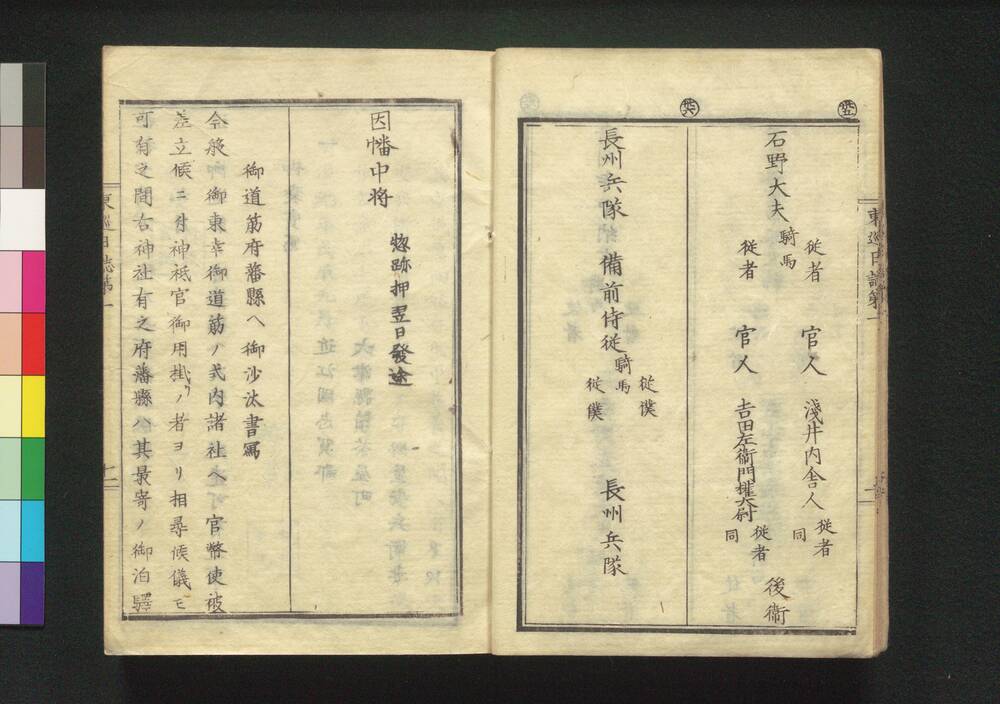 石野大夫
騎馬
従者
従者
官人
官人
淺井内舎人
従者
同
吉田左衛門權大尉
従者
同
後衛
長州兵隊
備前侍従
騎馬
従僕
従僕
長州兵隊
因幡中将
惣跡押翌日發途
御道筋府藩縣ヘ御沙汰書冩
今般御東幸御道筋ノ式内諸社ヘ官幣使被
差立候ニ付神祇官御用掛リノ者ヨリ相尋候儀モ
可有之間右神社有之府藩縣ハ其最寄ノ御泊驛
東巡日誌第一
東巡日誌第一
十一